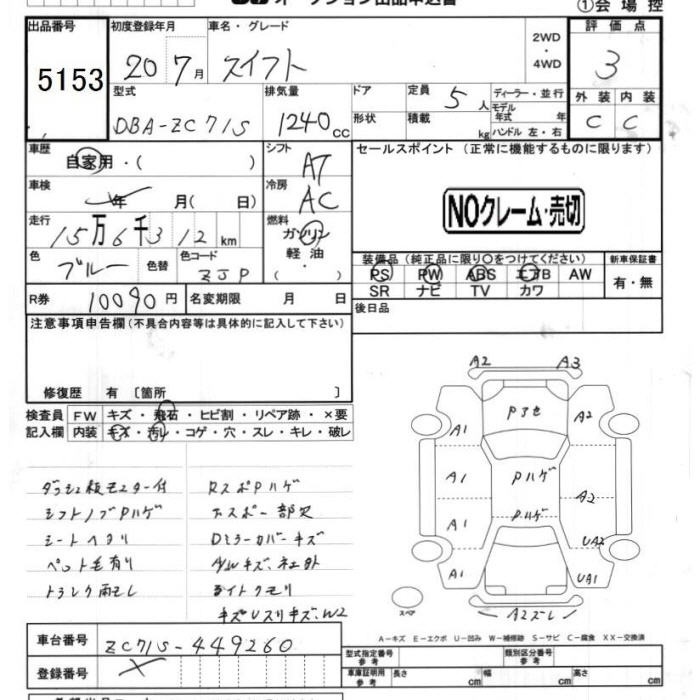 オークション出品申込書
①会場控
出品番号 初度登録年月 車名・グレード 2WD・4WD 評価点
5153 20 7月 スイフト 3
型式 排気量 ドア 定員 5人 ディーラー・並行 外装 内装
DBA-ZC71S 1240cc 形状 積載 kg モデル年式 年 ハンドル 左・右 C C
車歴 自家用・( ) シフト AT セールスポイント(正常に機能するものに限ります)
車検 年 月( 日) 冷房 AC
NOクレーム・売切
走行 15万6千312km 燃料 ガソリン・軽油・( )
色 ブルー 色替 色コード ZJP
装備品(純正品に限り○をつけてください) 新車保証書
PS PW ABS エアB AW 有・無
SR ナビ TV カワ
R券 10090円 名変期限 月 日 後日品
注意事項申告欄(不具合内容等は具体的に記入して下さい)
修復歴 有〔箇所 〕
検査員 FW キズ・飛石・ヒビ割・リペア跡・×要
記入欄 内装 キズ・汚レ・コゲ・穴・スレ・キレ・破レ
A2 A3
Pアセ
A1 A2
A1 Pハゲ
A2
A1 Pハゲ UA2
A1 UA1
A2ズレ
スペア
シフトノブPハゲ
シートヘタリ Dミラーカバーキズ
ペット毛有り
ライトクモリ
A-キズ E-エクボ U-凹み W-補修跡 S-サビ C-腐食 XX-交換済
車台番号 ZC71S-449260 型式指定番号 参考 類別区分番号 参考
登録番号 車庫証明用 参考 長さ cm 幅 cm 高さ cm